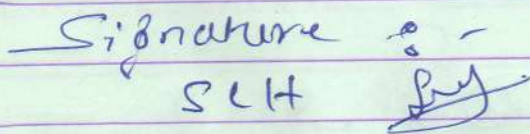 Signature :-
SLH